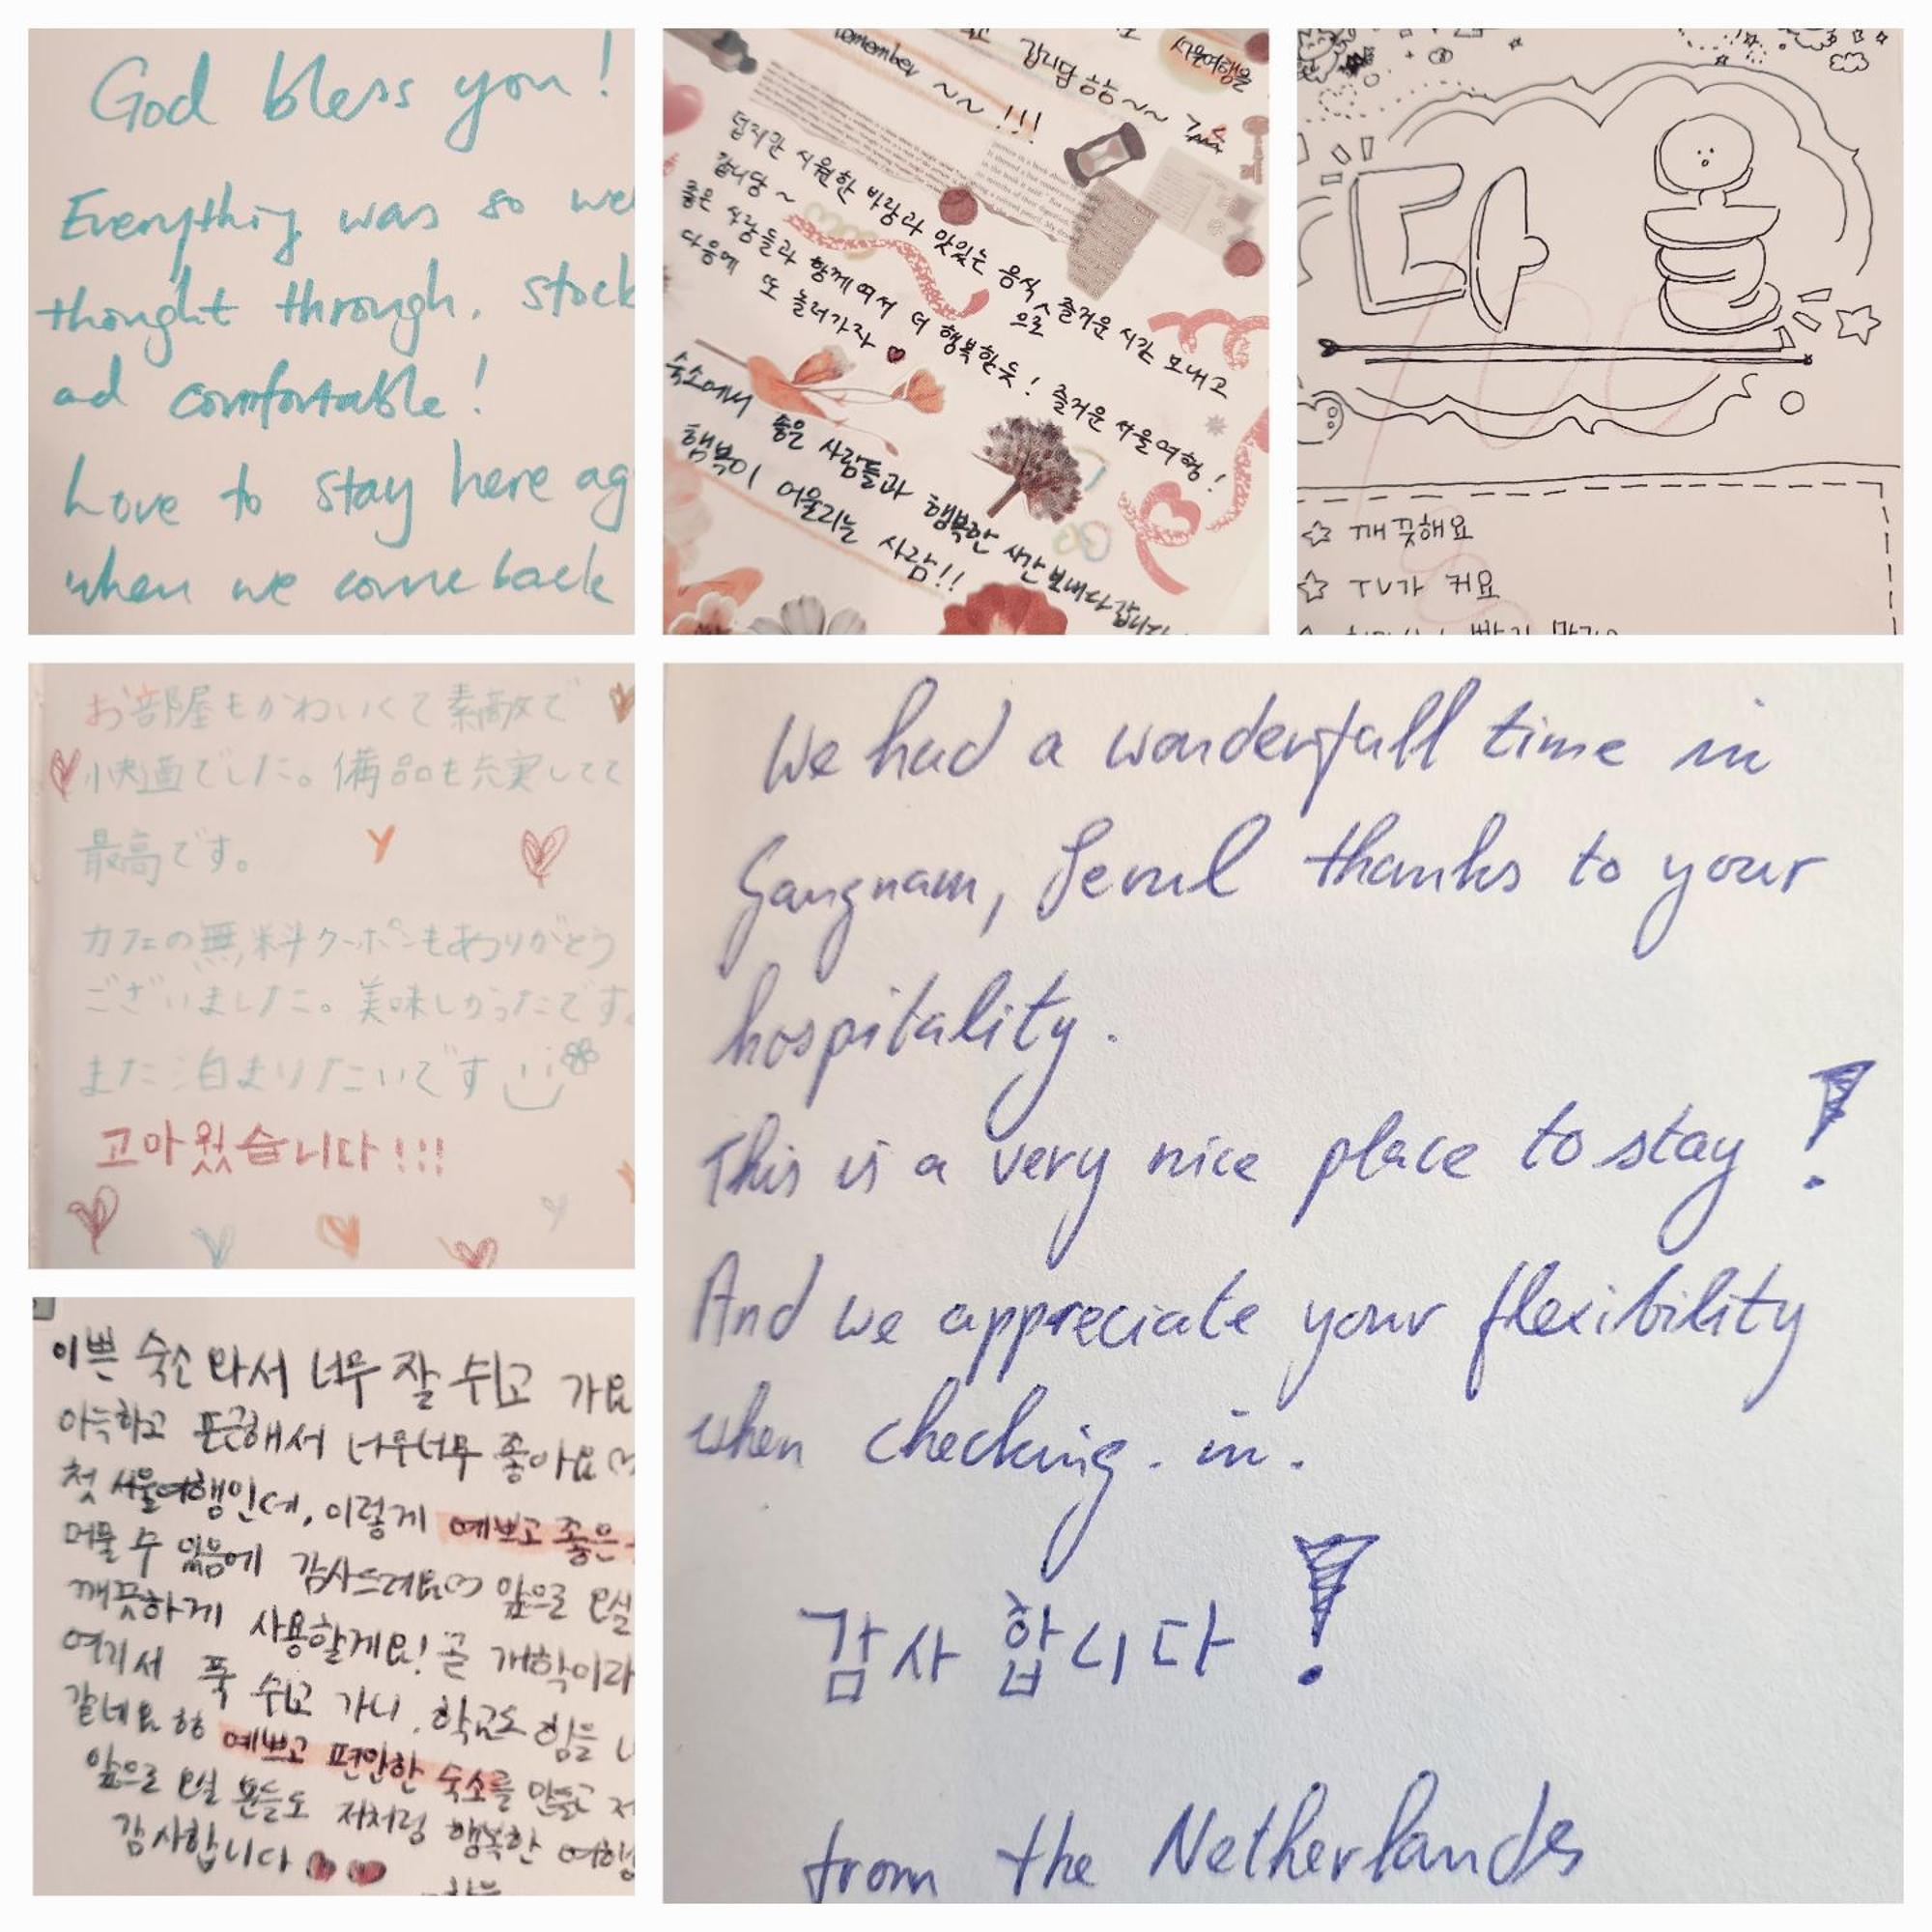 God bless you!
Everything was so we
thought through, stock
ad comfortable!
Love to stay here ag
when we come back
remember ~~!!!
갑니담 ㅎㅎ~~
서울여행을
덥지만 시원한 바람과 맛있는 음식으로 즐거운 시간 보내고
갑니당~
좋은 사람들과 함께여서 더 행복한듯! 즐거운 서울여행!
다음에 또 놀러가자 ♥
숙소에서 좋은 사람들과 행복한 시간 보내다 갑니다
행복이 어울리는 사람!!
다음
☆ 깨끗해요
☆ TV가 커요
お部屋もかわいくて素敵で
小映画でした。備品も充実してて
最高です。
カフェの無料クーポンもありがとう
ございました。美味しかったです。
また泊まりたいです
고마웠습니다!!!
We had a wonderfull time in
Gangnam, Seoul thanks to your
hospitality.
This is a very nice place to stay!
And we appreciate your flexibility
when checking.in.
감사합니다!
from the Netherlands
이쁜 숙소 와서 너무 잘 쉬고 가요
아늑하고 포근해서 너무너무 좋아요♡
첫 서울여행인데, 이렇게 예쁘고 좋은
머물 수 있음에 감사드려요♡ 앞으로 오실
깨끗하게 사용할게요! 곧 개학이라
여기서 푹 쉬고 가니, 학교도 힘을
같네요 ㅎㅎ 예쁘고 편안한 숙소를 만들고
앞으로 오실 분들도 저처럼 행복한 여행
감사합니다 ♥♥